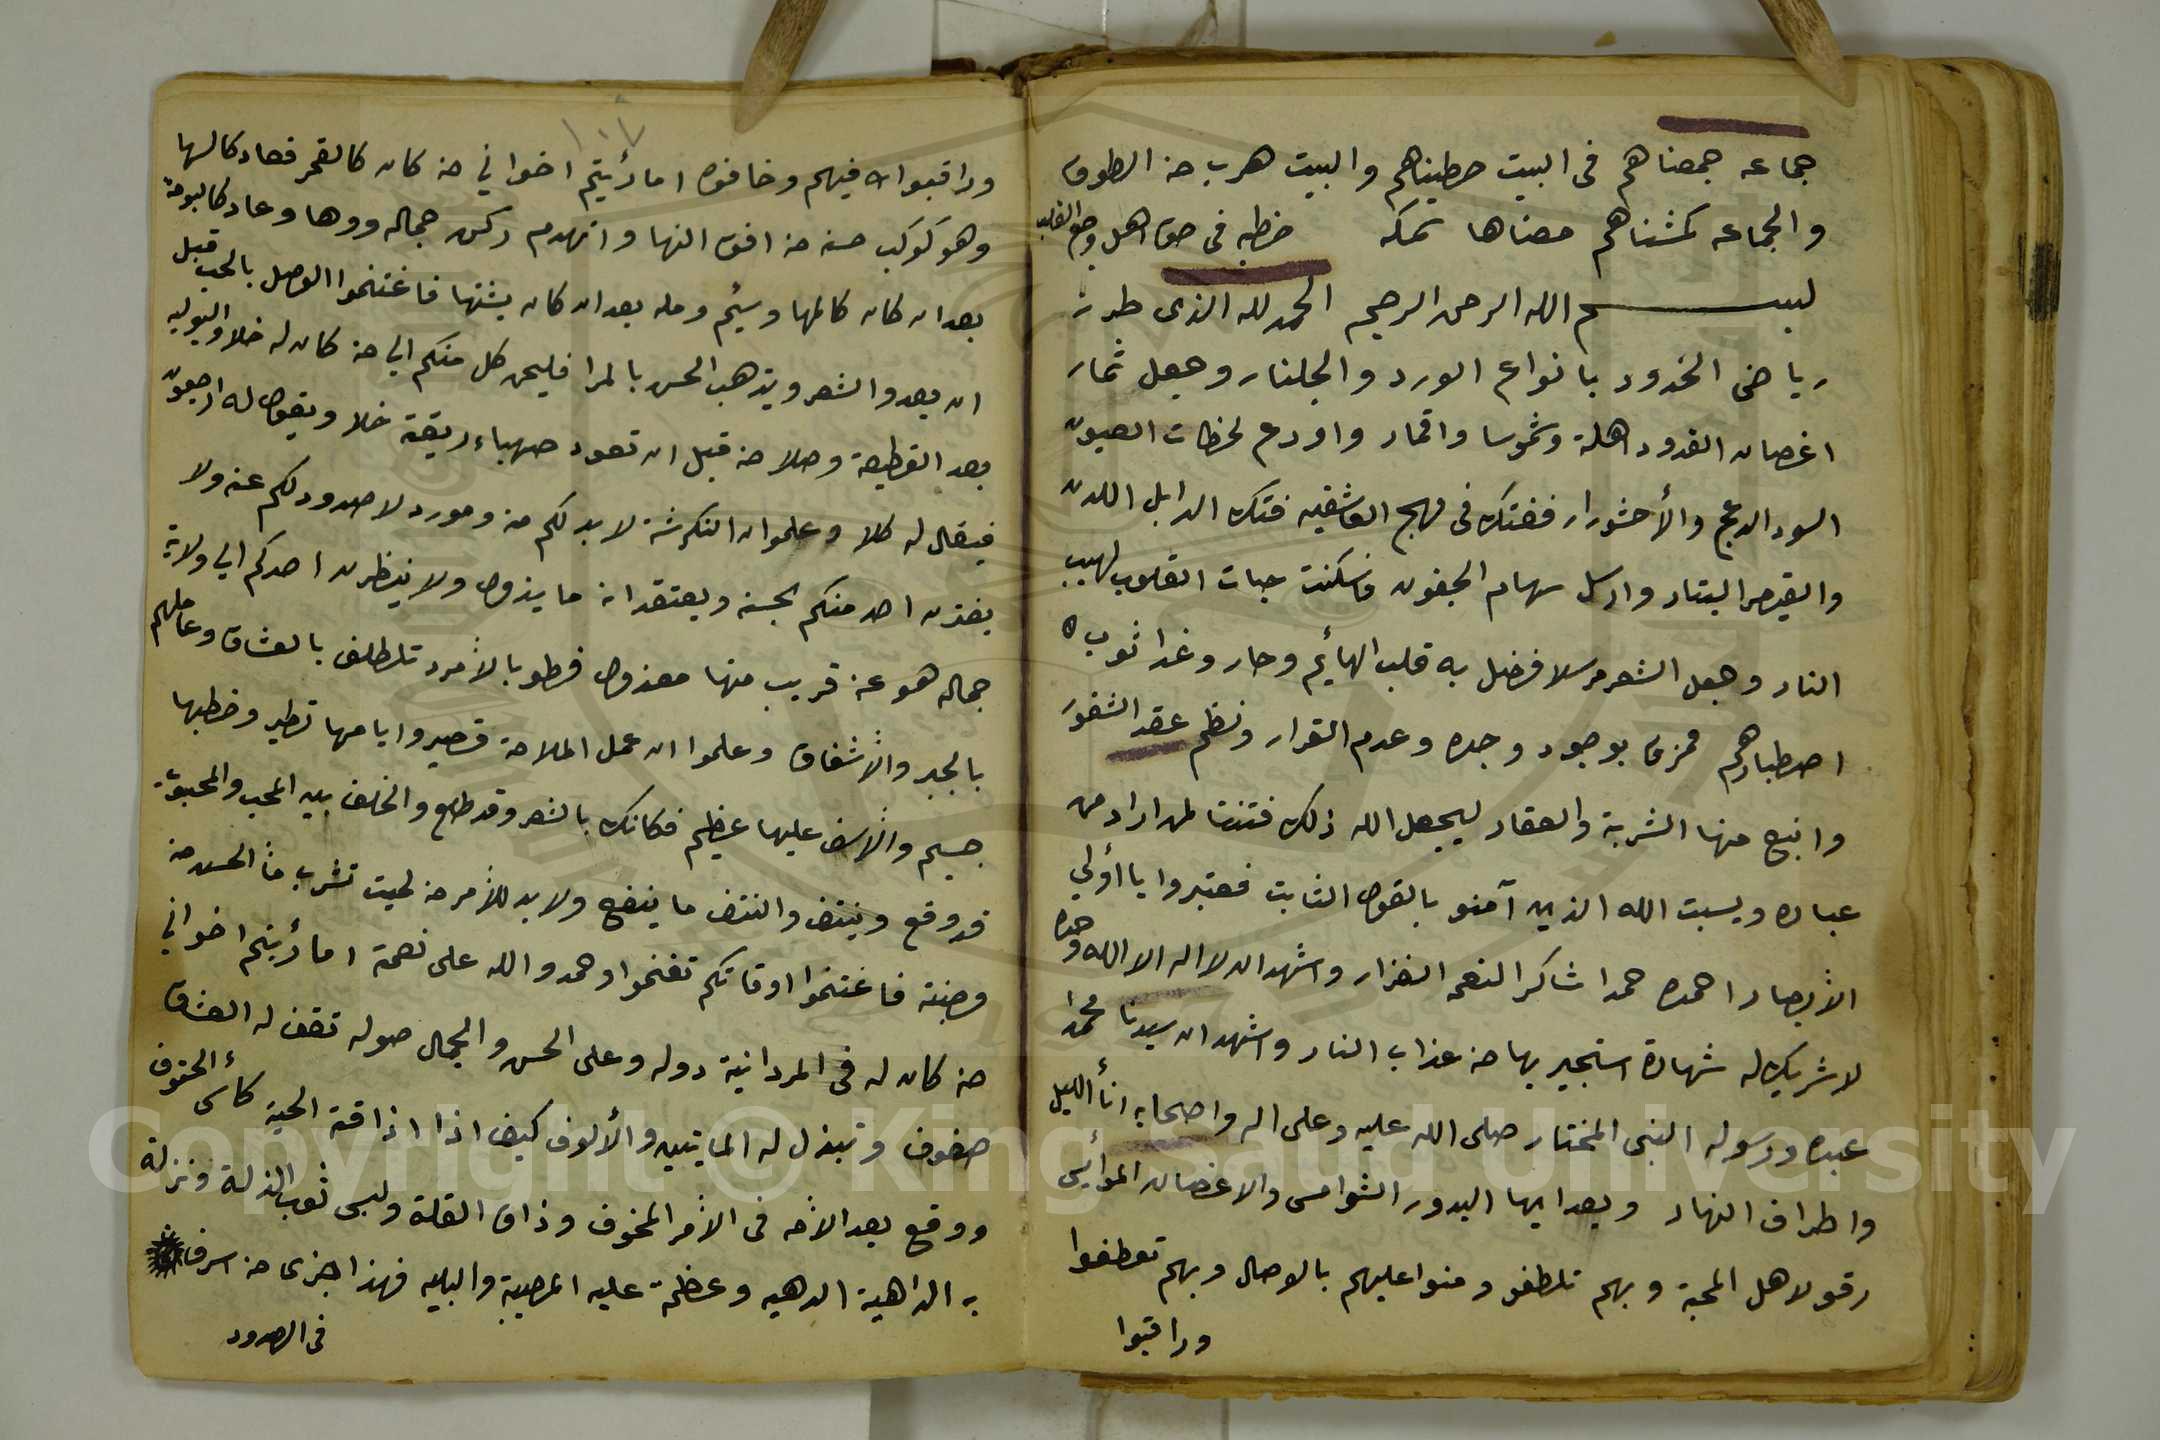 جماعه جمعناهم في البيت حطيناهم والبيت هرب من الطوق
والجماعه كمشناهم معناها سمكه خطبه في حق اهل وجع القلب
بسم الله الرحمن الرحيم الحمد لله الذي طرز
رياض الخدود بانواع الورد والجلنار وجعل ثمار
اغصان القدود اهلة وشموسا واقمار واودع لحظات العيون
السود الدعج والأحورار ففتك في مهج العاشقين فتك الدابل اللدن
والقيصر البتار وارسل سهام الجفون فاسكنت حبات القلوب لهيب
النار وجعل الشعر مرسلا فضل به قلب الهأيم وحار وغدا ثوب
اصطبارهم ممزق بوجود وجده وعدم القرار ونظم عقد الثغور
وانبع منها الشربة والعقار ليجعل الله ذلك فتنتا لمن اراد من
عباده ويسبت الله الذين آمنو بالقول الثابت فعتبروا يا أولي
الأبصار احمده حمدا شاكر النعمه الغزار واشهد ان لا اله الا الله وحده
لا شريك له شهادة استجير بها من عذاب النار واشهد ان سيدنا محمدا
عبده ورسوله النبي المختار صلى الله عليه وعلى اله واصحابه انأ الليل
واطراف النهار وبعد ايها البدور الشوامس والاغصان الموأيس
رقو لاهل المحبة وبهم تلطفو ومنوا عليهم بالوصال وبهم تعطفوا
وراقبوا
١٠٧
وراقبوا الله فيهم وخافوه اما رأيتم اخواني من كان كالقمر فصار كالسها
وهو كوكب حسنه من افق النها وانهدم ركن جماله ووها وعاد كالبومة
بعد ان كان كالمها وسئم ومله بعد ان كان يشتها فاغتنموا الوصل بالحب قبل
ان يعدو الشعر ويذهب الحسن بالمرا فليحن كل منكم الي من كان له خلا واليوليه
بعد القطيعة وصلا من قبل ان تعود صهباء ريقة خلا ويقول له ارجعون
فيقال له كلا وعلموا ان النكرشة لا بد لكم منه ومورد لا صدود لكم عنه ولا
يغترن احد منكم بحسنه ويعتقد انه ما يذول ولا ينظرن احدكم الي ولاة
جماله هو عن قريب منها معذول فطوبا لأمرد تلطلف بالعشاق وعاملهم
بالجبر والأشفاق وعلموا ان عمل الملاحة قصير وايامها تطير وخطبها
جسيم والأسف عليها عظيم فكانك بالشعر وقد طلع والخلف بين المحب والمحبوب
قد وقع وينتف والنتف ما ينفع ولا بد للأمر من لحيت تشرب مأ الحسن من
وجنته فاغتنموا اوقاتكم تغنموا وحمدو الله على نعمة اما رأيتم اخواني
من كان له في المردانية دوله وعلى الحسن والجمال صوله تقف له العشاق
صفوف وتبذل له المايتين والألوف كيف اذا اذاقته الحية كأس الحتوف
ووقع بعد الأمن في الأمر المخوف وذاق القلة ولبس ثوب الذلة ونزلة
به الداهية الدهيه وعظمة عليه المصيبة والبليه فهذا جزى من اسرف
في الصدود
Copyright © King Saud University